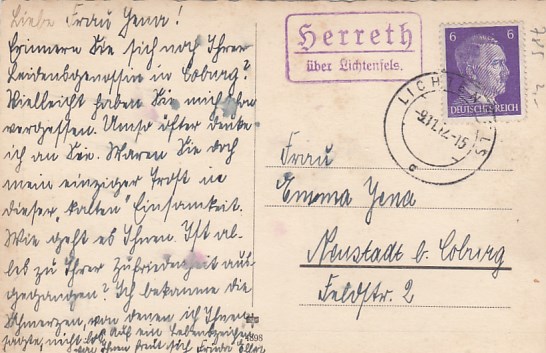 Liebe Frau Jena!
Erinnern Sie sich noch Ihrer
Leidensgenossin in Coburg?
Vielleicht haben Sie mich schon
vergessen. Umso öfter denke
ich an Sie. Waren Sie doch
mein einziger Trost in
dieser "kalten" Einsamkeit.
Wie geht es Ihnen. Ist al-
les zu Ihrer Zufriedenheit aus-
gegangen? Ich bekomme die
Schmerzen, von denen ich Ihnen
sagte, nicht los. Auf ein Lebenszeichen
von Ihnen freut sich Frieda
Herreth
über Lichtenfels.
6 6
DEUTSCHES REICH
LICHTENFELS
-9.11.42-15
c
Frau
Emma Jena
Neustadt b. Coburg
Feldstr. 2